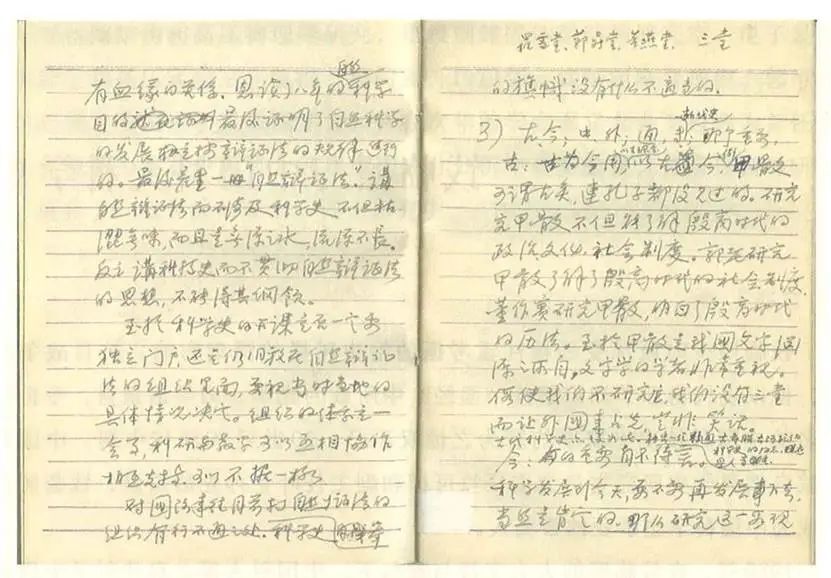 自然
有血缘的关系。恩读了八年的科学
目的就在证明最后证明了自然科学
的发展独立按辩证法的规律进行
的。最后产生一册"自然辩证法"。讲
自然辩证法而不涉及科学史,不但枯
涩无味,而且是无源之水,流源不长。
反之讲科技史而不贯彻自然辩证法
的思想,不能得其纲领。
至于科学史的开课是否一定要
独立门户,还是仍旧放在自然辩证
法的组织里面,要视当时当地的
具体情况决定。组织的体系是一
会事,科研与教学可以互相协作
相互支持,可以不拘一格。
对国际事往用单打自然辩证法的
组织有行不通之处,科学史
的旗帜没有什么不适当的。
3) 古今,中外,通
古:古为今用,以古通今,甲骨文
可谓古矣,连孔子都没见过的。研究
究甲骨文不但能了解殷商时代的
政治文化、社会制度。郭老研究
甲骨文了解了殷商时代的社会制度,
董作宾研究甲骨文,明白了殷商时代
的历法。至于甲骨文是我国文字渊
源之所自,文字学的学者非常重视。
倘使我们不研究,我们没有三堂
而让外国事占先,岂非笑话。
今:有的重要自不待言。
科学发展到今天,要不要再发展下去,
当然是肯定的。那么研究这一发现